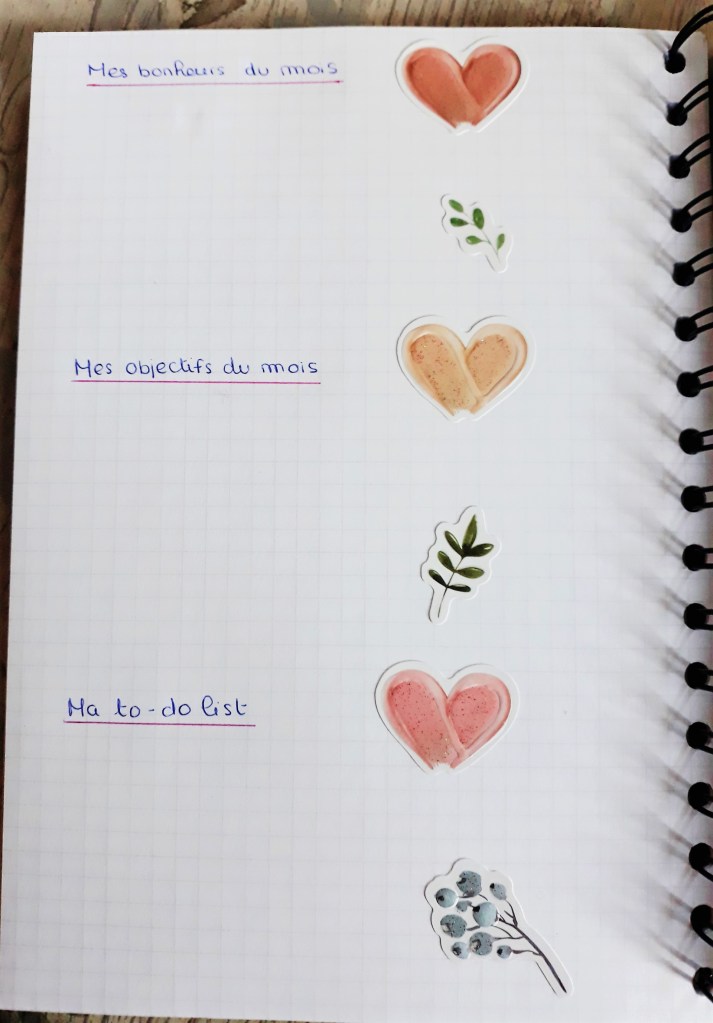 Mes bonheurs du mois
Mes objectifs du mois
Ma to-do list